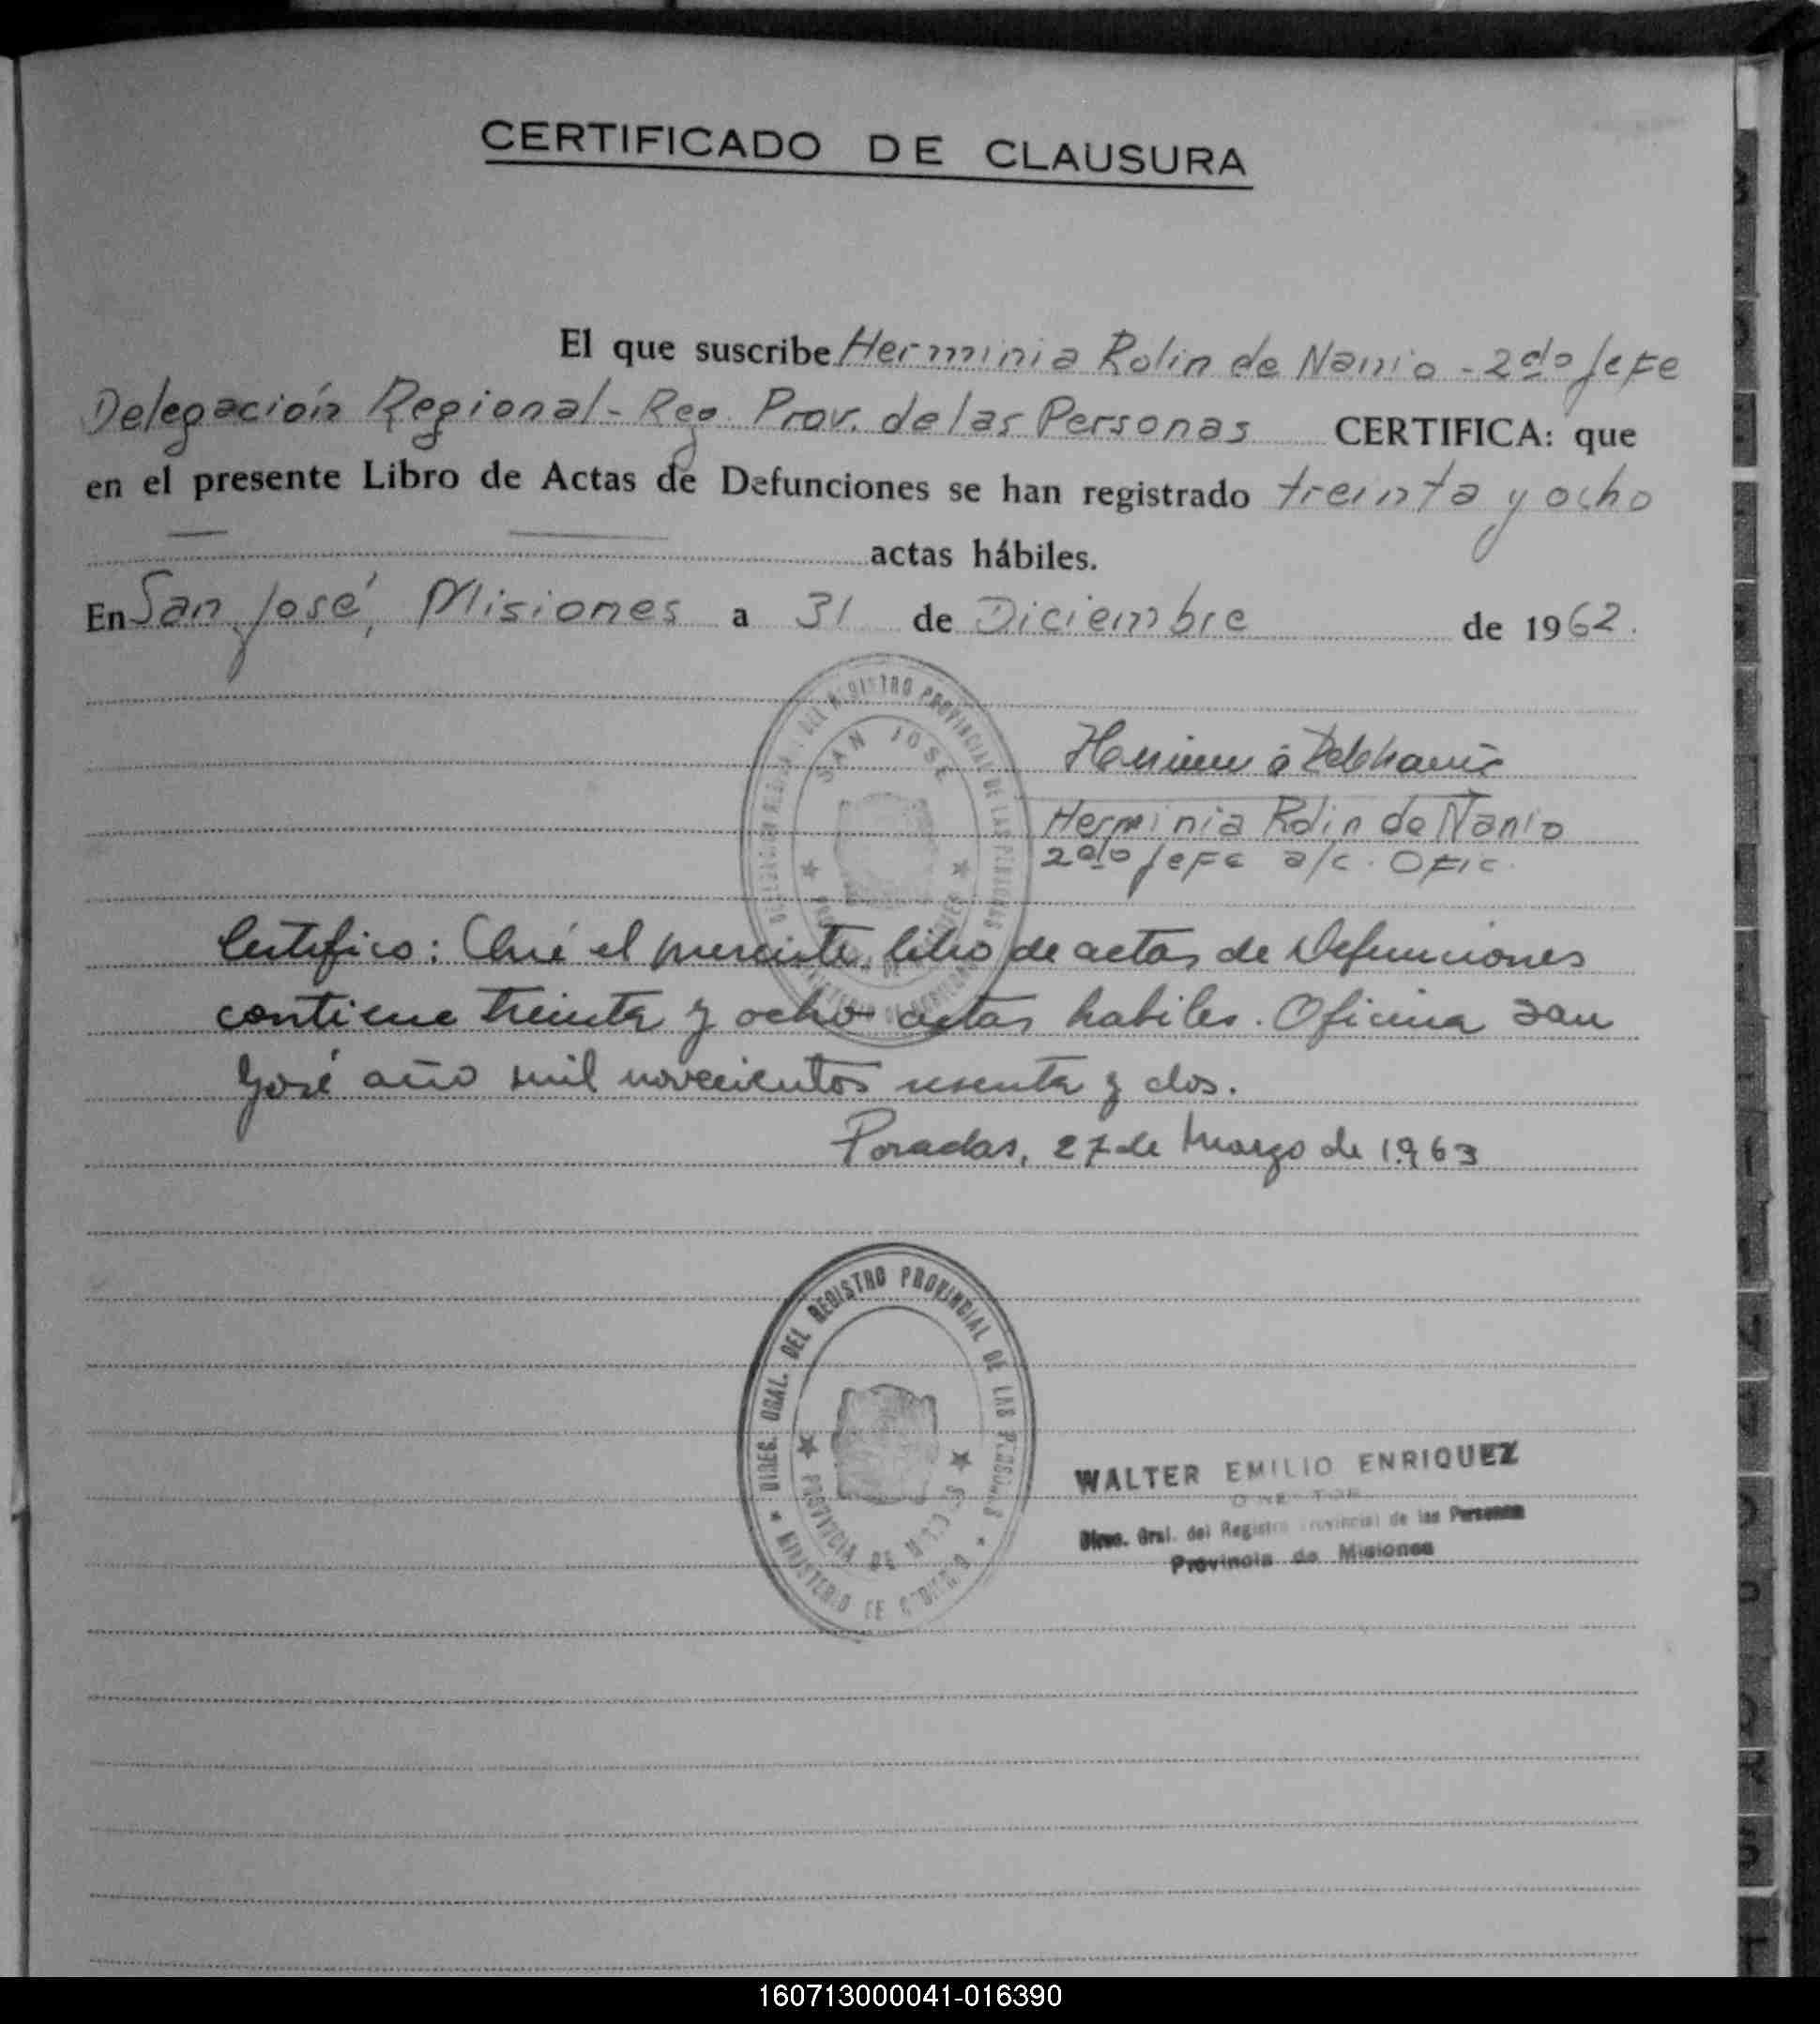 CERTIFICADO DE CLAUSURA
El que suscribe Herminia Rolin de Nanio - 2do Jefe
Delegación Regional - Reg. Prov. de las Personas CERTIFICA: que
en el presente Libro de Actas de Defunciones se han registrado treinta y ocho
actas hábiles.
En San José, Misiones a 31 de Diciembre de 1962.
DEL REGISTRO PROVINCIAL DE LAS PERSONAS
SAN JOSE
Herminia Rolin de Nanio
2do Jefe a/c. Ofic.
Certifico: Que el presente libro de actas de Defunciones
contiene treinta y ocho actas habiles. Oficina San
José año mil novecientos sesenta y dos.
Posadas, 27 de Marzo de 1963
DIREC. GRAL. DEL REGISTRO PROVINCIAL DE LAS PERSONAS
PROVINCIA DE MISIONES
MINISTERIO DE GOBIERNO
WALTER EMILIO ENRIQUEZ
DIRECTOR
Direc. Gral. del Registro Provincial de las Personas
Provincia de Misiones
160713000041-016390